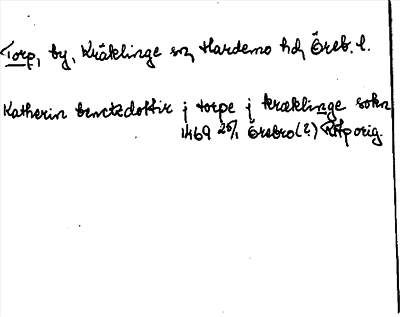 Torp, by, Kräklinge sn, Hardemo hd, Öreb. l.
Katherin benctzdottir j torpe j kræklinge sokn
1469 25/1 Örebro (?) RAp orig.